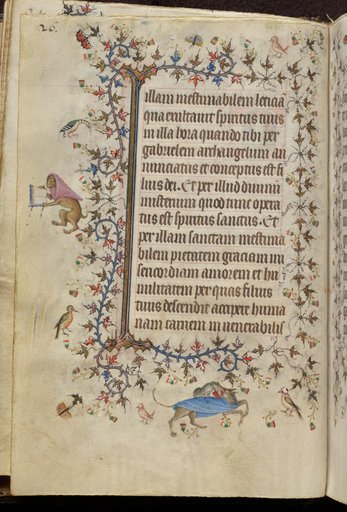 26.
illam inestimabilem leticia
qua exultauit spiritus tuus
in illa hora quando tibi per
gabrielem archangelum an
nunciatus et conceptus est fi
lius dei. Et per illud diuinū
misterium quod tunc opera
tus est spiritus sanctus. Et
per illam sanctam inestima
bilem pietatem graciam mi
sericordiam amorem et hu
militatem per quas filius
tuus descendit accipere huma
nam carnem in uenerabili